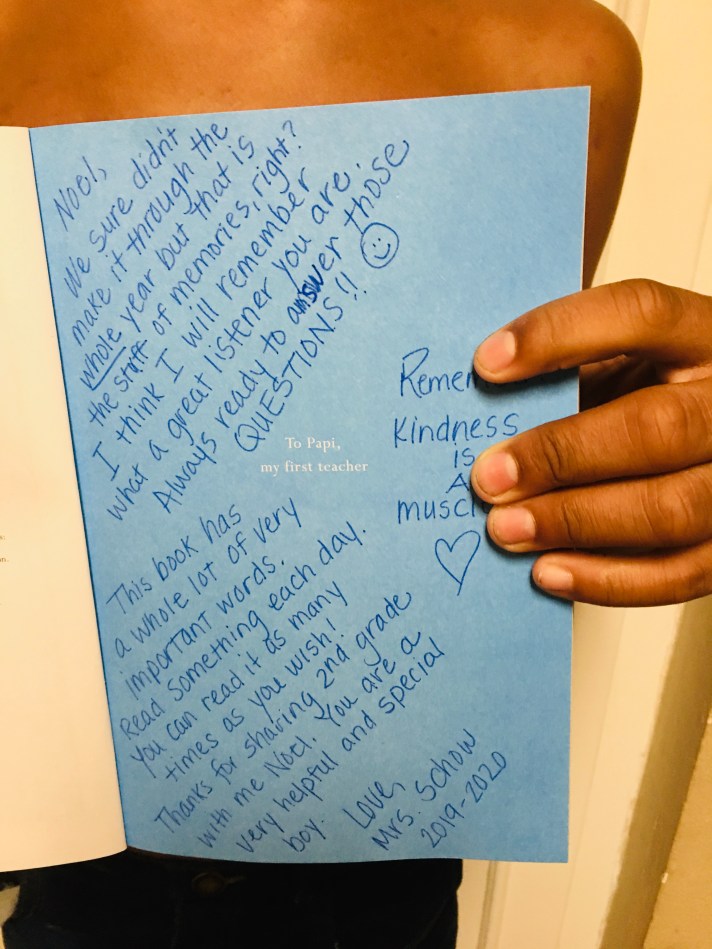 Noel,
We sure didn't
make it through the
whole year but that is
the stuff of memories, right?
I think I will remember
what a great listener you are.
Always ready to answer those
QUESTIONS!!
To Papi,
my first teacher
Kindness
IS
A
This book has
a whole lot of very
important words.
Read something each day.
You can read it as many
times as you wish!
Thanks for sharing 2nd grade
with me Noel. You are a
very helpful and special
boy.
Love,
Mrs. Schow
2019-2020